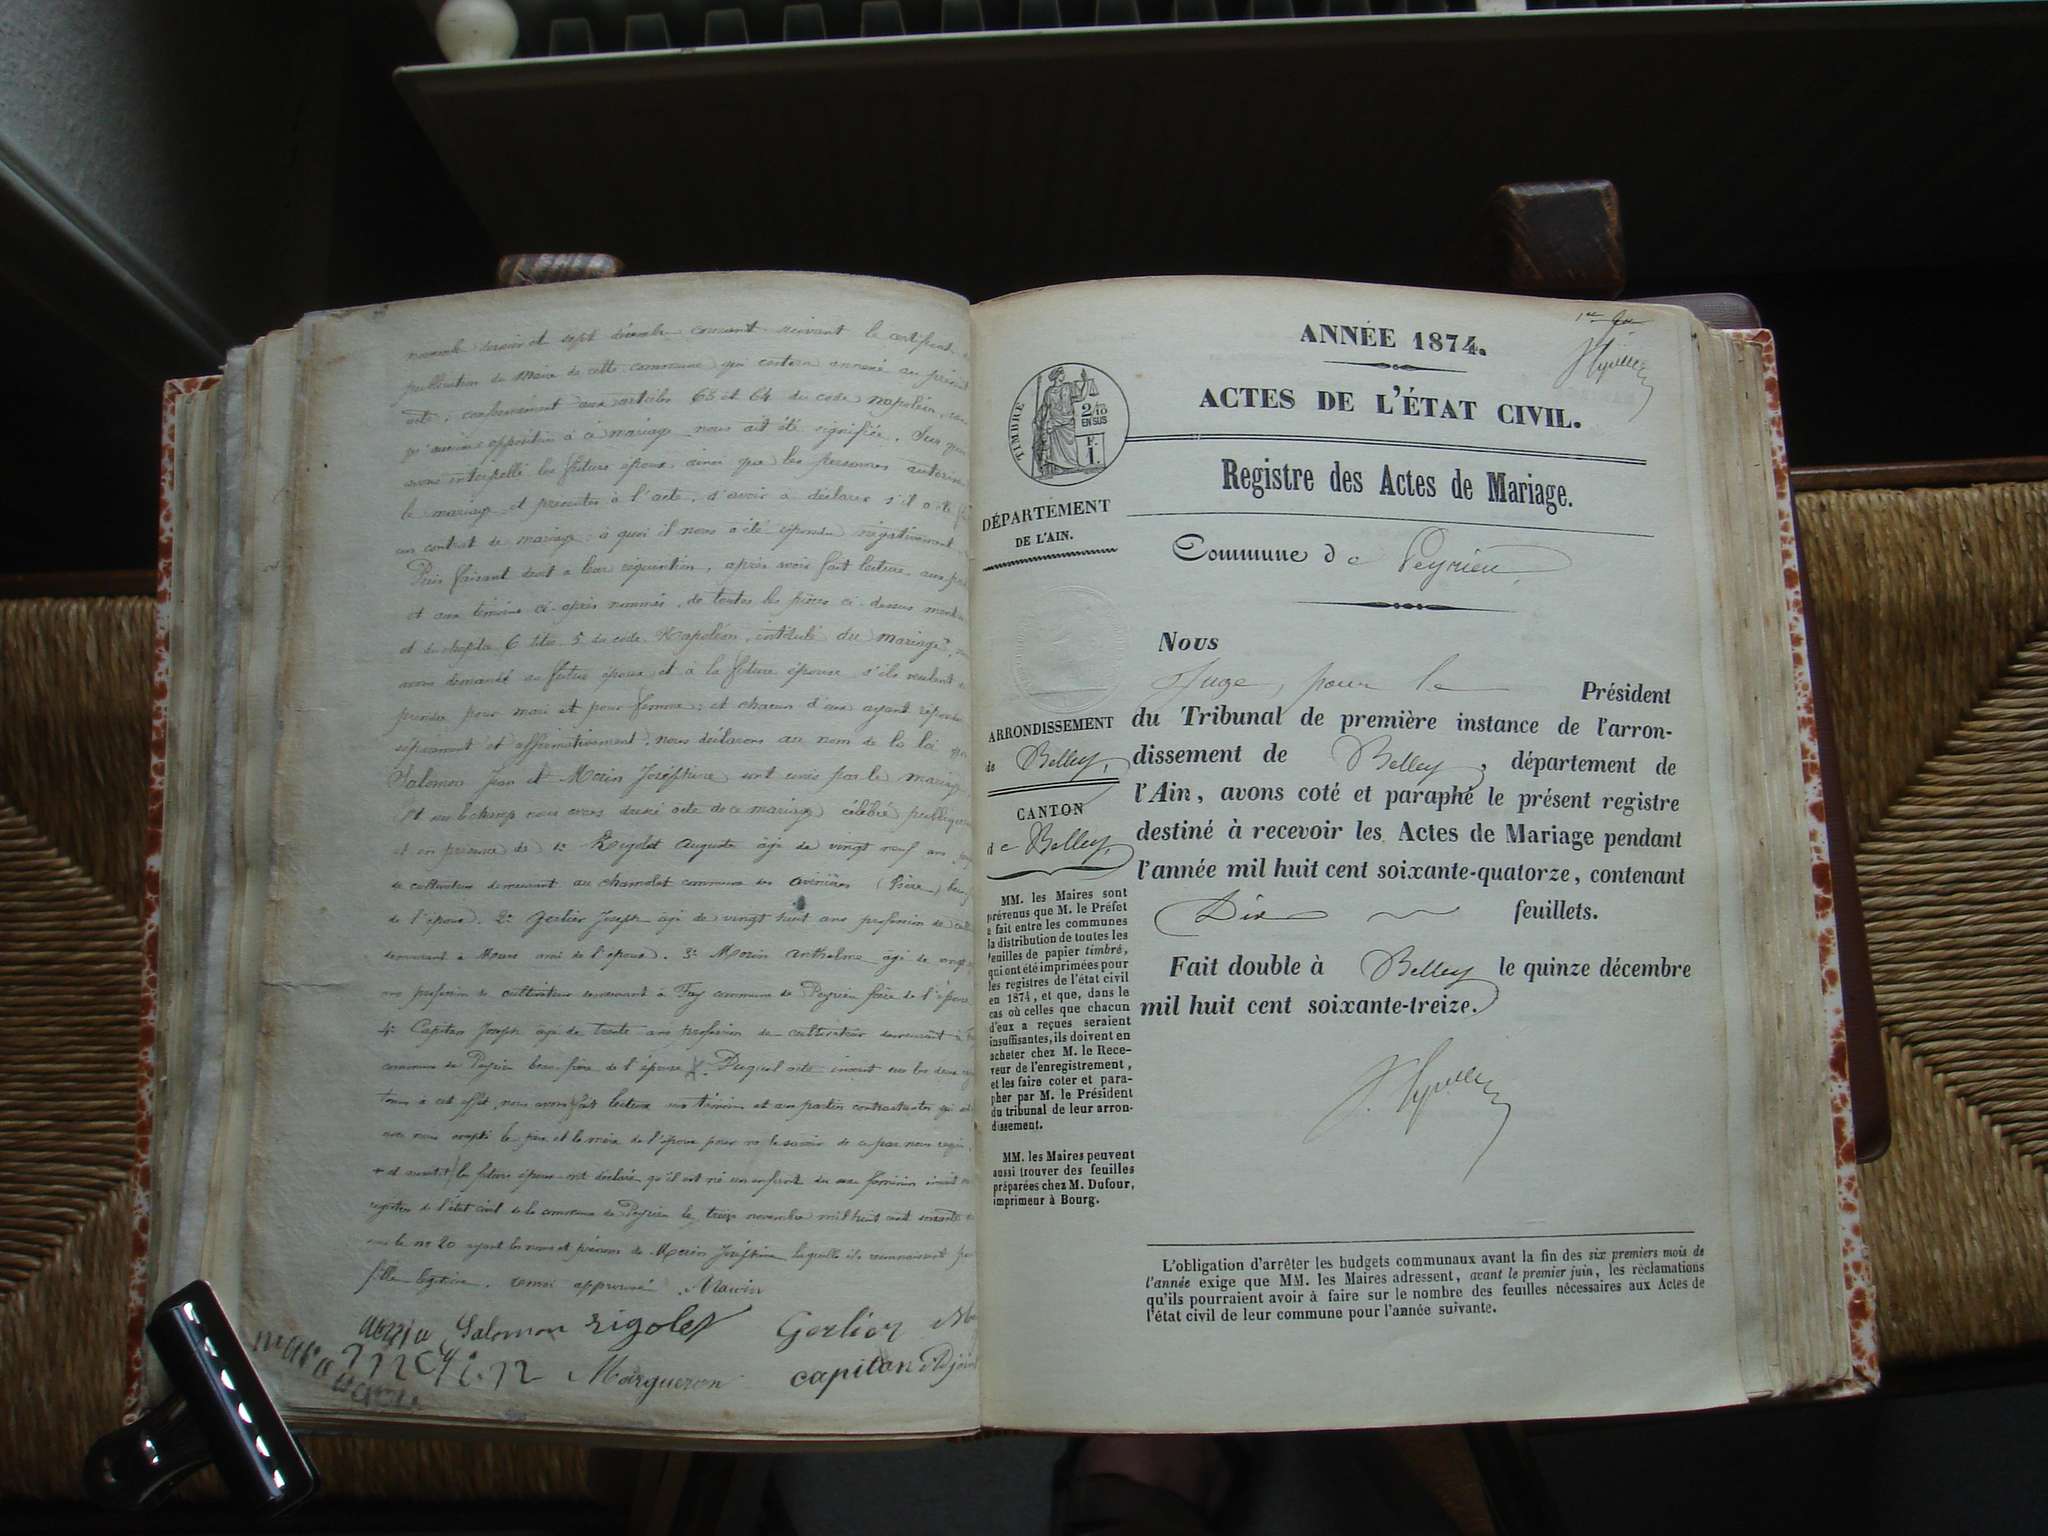 novembre dernier et sept décembre courant suivant le certificat de
publication du Maire de cette commune qui restera annexé au présent
acte, conformément aux articles 63 et 64 du code napoléon, sans
qu'aucune opposition à ce mariage nous ait été signifiée. Sur quoi
avons interpellé les futurs époux ainsi que les personnes autorisant
le mariage et presentes à l'acte, d'avoir à déclarer s'il a été fait
un contrat de mariage à quoi il nous a été répondu négativement
Puis faisant droit a leur réquisition, après avoir fait lecture aux
et aux témoins ci-après nommés, de toutes les pièces ci-dessus
et du chapitre 6 titre 5 du code Napoléon intitulé du mariage,
avons demandé au futur époux et à la future épouse s'ils veulent se
prendre pour mari et pour femme; et chacun d'eux ayant répondu
séparément et affirmativement, nous déclarons au nom de la loi que
Salomon Jean et Morin Joséphine sont unis par le mariage
Et sur le champ nous avons dressé acte de ce mariage célébré publiquement
et en présence de 1º Rigolet Auguste âgé de vingt neuf ans
de cultivateur demeurant au chamolet commune des avenières (Isère)
de l'époux. 2º Gerlier Joseph âgé de vingt huit ans profession de
demeurant a Mours ami de l'époux. 3º Morin Anthelme âgé de
ans profession de cultivateur demeurant à Fay commune de Peyrieu frère de l'épouse
4º Capitan Joseph âgé de trente ans profession de cultivateur demeurant à
commune de Peyrieu beau-frère de l'épouse X. Duquel acte inscrit sur les deux
tenus à cet effet, nous avons fait lecture aux témoins et aux parties contractantes qui
avec nous excepté le père et la mère de l'époux pour ne le savoir de ce par nous requis
+ et aussitôt les futurs époux ont déclaré qu'il est né un enfant du sexe féminin inscrit
registres de l'état civil de la commune de Peyrieu le treize novembre mil huit cent soixante
sous le nº 20 ayant les noms et prénoms de Morin Joséphine laquelle ils reconnaissent pour
fille légitime. renvoi approuvé. Morin
Salomon rigolet Gerlier
Margueron capitan Adjoint
ANNÉE 1874.
ACTES DE L'ÉTAT CIVIL.
TIMBRE
2/10
EN SUS
F.
1.
Registre des Actes de Mariage.
DÉPARTEMENT
DE L'AIN.
Commune de Peyrieu
Nous
Juge, pour le Président
du Tribunal de première instance de l'arron-
dissement de Belley, département de
l'Ain, avons coté et paraphé le présent registre
destiné à recevoir les Actes de Mariage pendant
l'année mil huit cent soixante-quatorze, contenant
Dix feuillets.
Fait double à Belley le quinze décembre
mil huit cent soixante-treize.
ARRONDISSEMENT
de Belley,
CANTON
de Belley,
MM. les Maires sont
prévenus que M. le Préfet
a fait entre les communes
la distribution de toutes les
feuilles de papier timbré,
qui ont été imprimées pour
les registres de l'état civil
en 1874, et que, dans le
cas où celles que chacun
d'eux a reçues seraient
insuffisantes, ils doivent en
acheter chez M. le Rece-
veur de l'enregistrement,
et les faire coter et para-
pher par M. le Président
du tribunal de leur arron-
dissement.
MM. les Maires peuvent
aussi trouver des feuilles
préparées chez M. Dufour,
imprimeur à Bourg.
L'obligation d'arrêter les budgets communaux avant la fin des six premiers mois de
l'année exige que MM. les Maires adressent, avant le premier juin, les réclamations
qu'ils pourraient avoir à faire sur le nombre des feuilles nécessaires aux Actes de
l'état civil de leur commune pour l'année suivante.